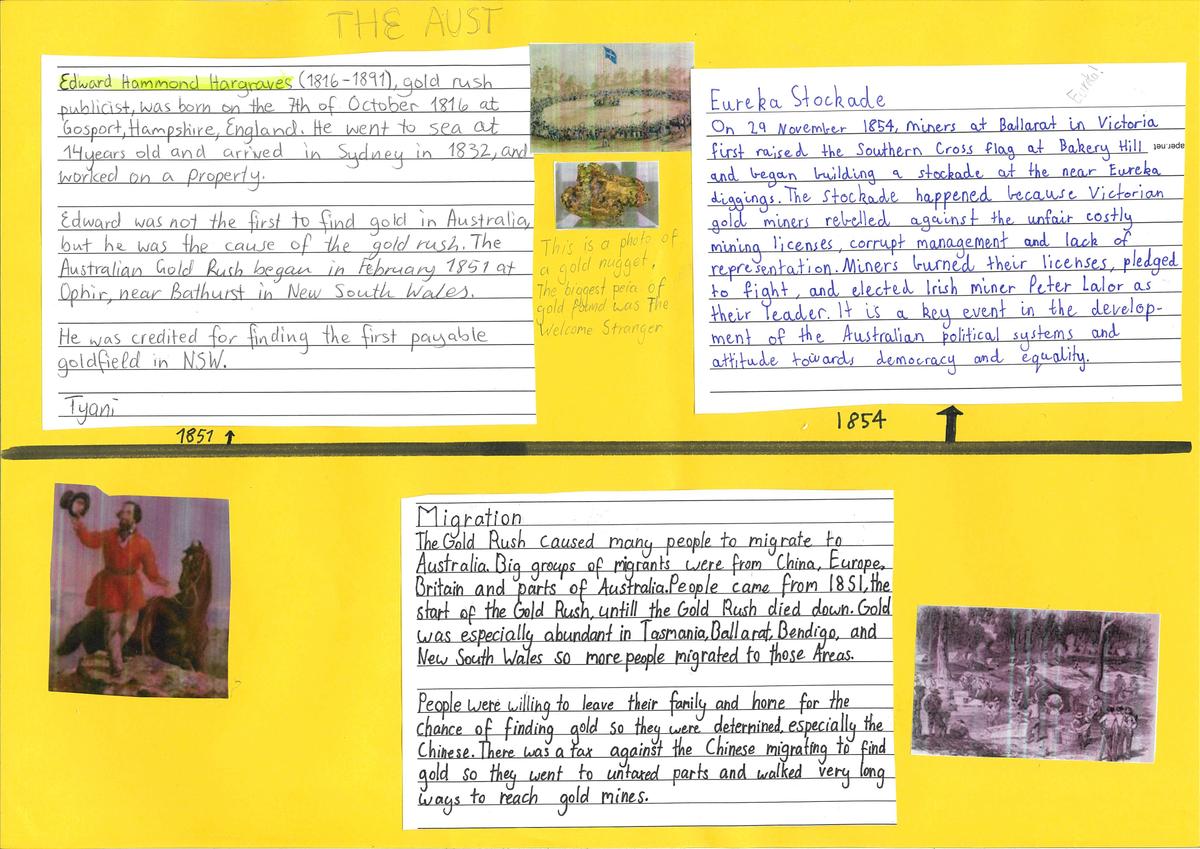 THE AUST
Edward Hammond Hargraves (1816-1891), gold rush
publicist, was born on the 7th of October 1816 at
Gosport, Hampshire, England. He went to sea at
14years old and arrived in Sydney in 1832, and
worked on a property.
Edward was not the first to find gold in Australia,
but he was the cause of the gold rush. The
Australian Gold Rush began in February 1851 at
Ophir, near Bathurst in New South Wales.
He was credited for finding the first payable
goldfield in NSW.
Tyani
1851
This is a photo of
a gold nugget.
The biggest peice of
gold found was The
Welcome Stranger
Eureka!
Eureka Stockade
On 29 November 1854, miners at Ballarat in Victoria
first raised the Southern Cross flag at Bakery Hill
and began building a stockade at the near Eureka
diggings. The stockade happened because Victorian
gold miners rebelled against the unfair costly
mining licenses, corrupt management and lack of
representation. Miners burned their licenses, pledged
to fight, and elected Irish miner Peter Lalor as
their leader. It is a key event in the develop-
ment of the Australian political systems and
attitude towards democracy and equality.
aper.net
1854
Migration
The Gold Rush caused many people to migrate to
Australia. Big groups of migrants were from China, Europe,
Britain and parts of Australia. People came from 1851, the
start of the Gold Rush, untill the Gold Rush died down. Gold
was especially abundant in Tasmania, Ballarat, Bendigo, and
New South Wales so more people migrated to those Areas.
People were willing to leave their family and home for the
chance of finding gold so they were determined, especially the
Chinese. There was a tax against the Chinese migrating to find
gold so they went to untaxed parts and walked very long
ways to reach gold mines.